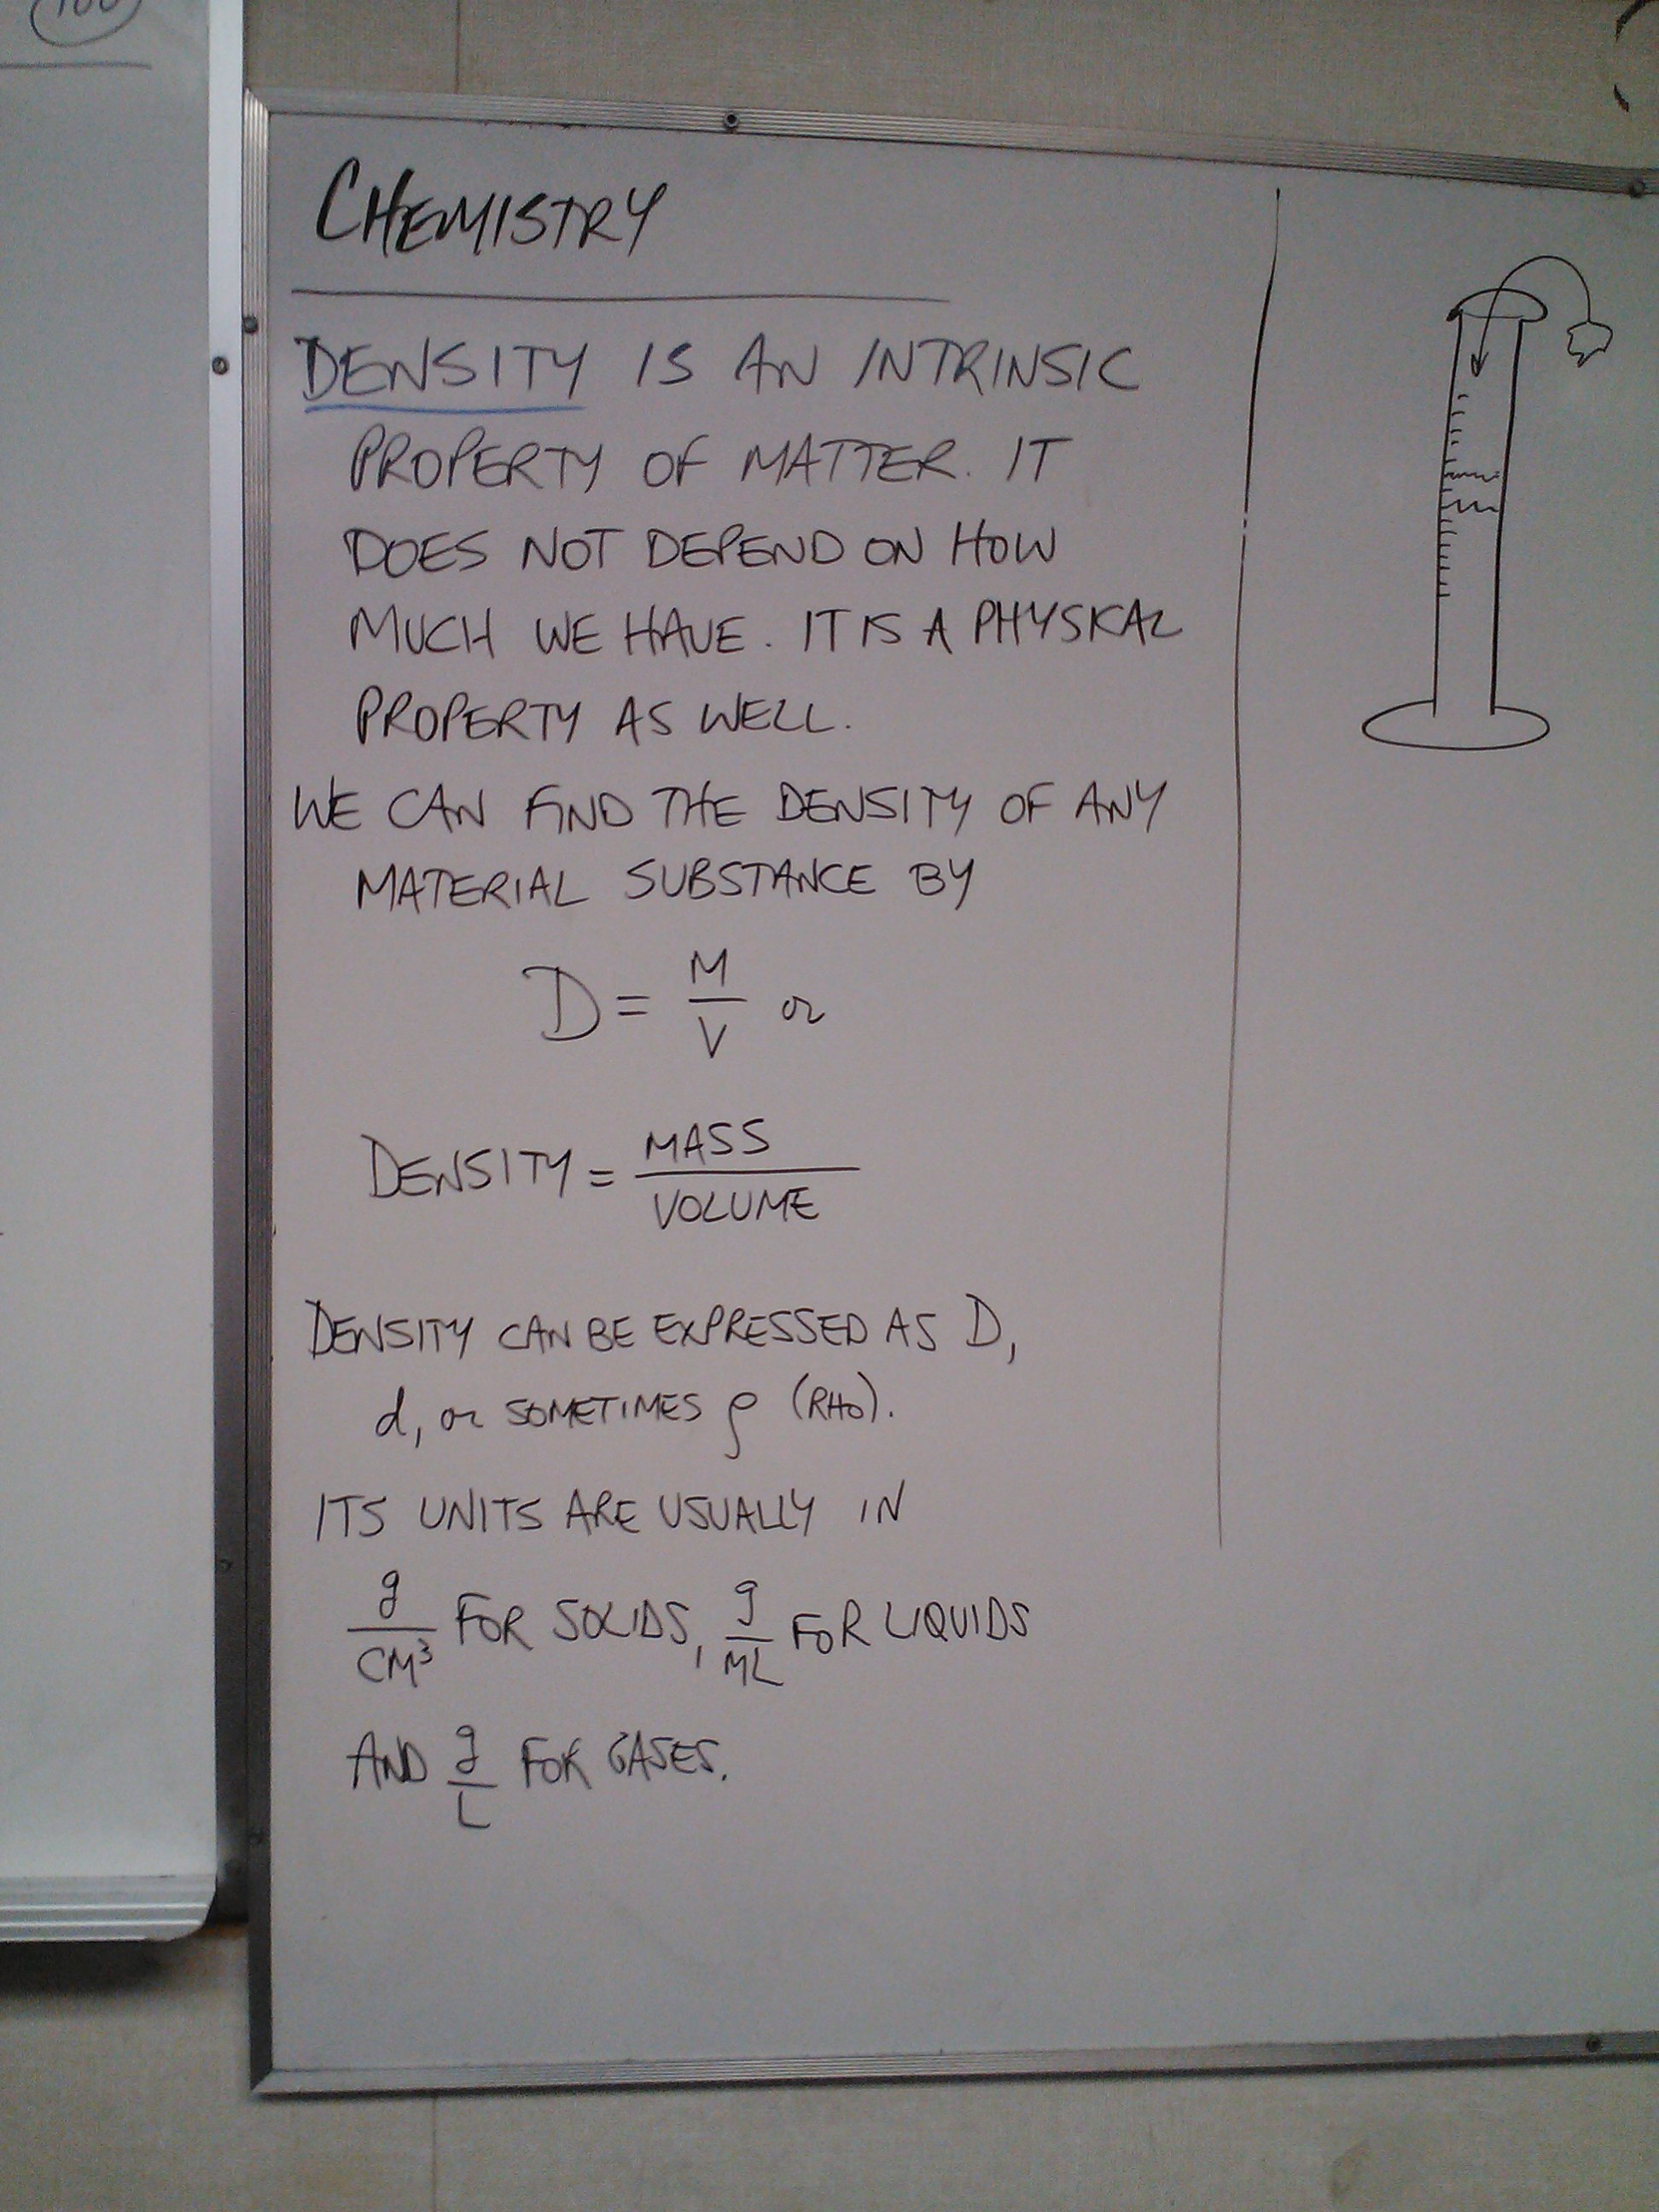 100
CHEMISTRY
DENSITY IS AN INTRINSIC
PROPERTY OF MATTER. IT
DOES NOT DEPEND ON HOW
MUCH WE HAVE. IT IS A PHYSICAL
PROPERTY AS WELL.
WE CAN FIND THE DENSITY OF ANY
MATERIAL SUBSTANCE BY
D = M/V or
DENSITY = MASS/VOLUME
DENSITY CAN BE EXPRESSED AS D,
d, or SOMETIMES ρ (RHO).
ITS UNITS ARE USUALLY IN
g/CM³ FOR SOLIDS, g/ML FOR LIQUIDS
AND g/L FOR GASES.